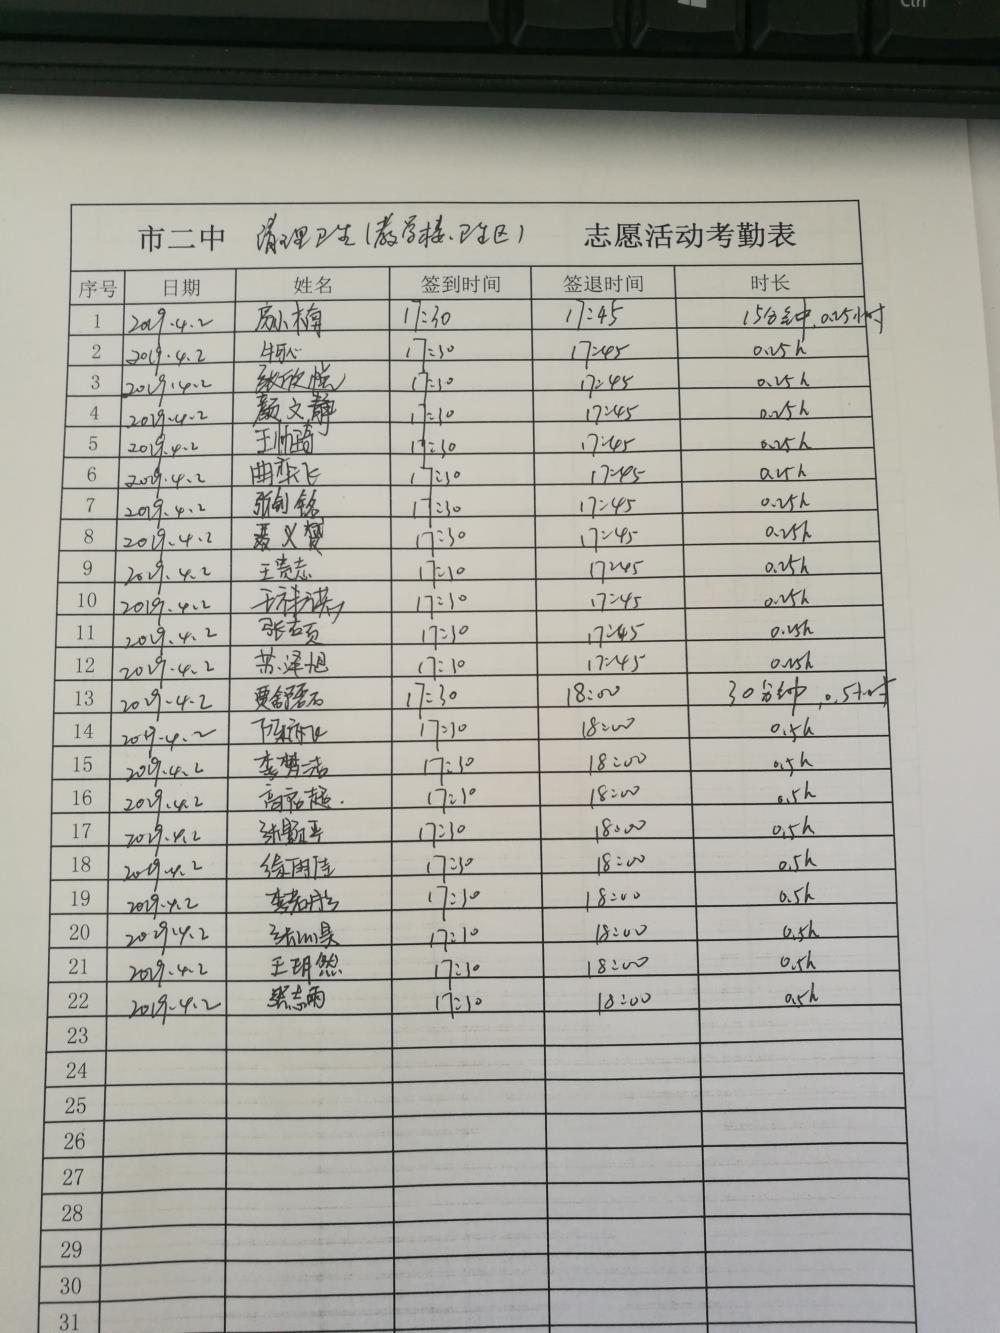 Ctrl
市二中 清理卫生(教学楼、卫生区) 志愿活动考勤表
序号 日期 姓名 签到时间 签退时间 时长
1 2019.4.2 17:30 17:45 15分钟,0.25小时
2 2019.4.2 17:30 17:45 0.25h
3 2019.4.2 17:30 17:45 0.25h
4 2019.4.2 颜文静 17:30 17:45 0.25h
5 2019.4.2 17:30 17:45 0.25h
6 2019.4.2 17:30 17:45 0.25h
7 2019.4.2 17:30 17:45 0.25h
8 2019.4.2 聂义贤 17:30 17:45 0.25h
9 2019.4.2 王贵志 17:30 17:45 0.25h
10 2019.4.2 17:30 17:45 0.25h
11 2019.4.2 17:30 17:45 0.25h
12 2019.4.2 苏泽旭 17:30 17:45 0.25h
13 2019.4.2 17:30 18:00 30分钟,0.5小时
14 2019.4.2 17:30 18:00 0.5h
15 2019.4.2 李梦洁 17:30 18:00 0.5h
16 2019.4.2 17:30 18:00 0.5h
17 2019.4.2 17:30 18:00 0.5h
18 2019.4.2 17:30 18:00 0.5h
19 2019.4.2 17:30 18:00 0.5h
20 2019.4.2 17:30 18:00 0.5h
21 2019.4.2 王玥然 17:30 18:00 0.5h
22 2019.4.2 17:30 18:00 0.5h
23
24
25
26
27
28
29
30
31